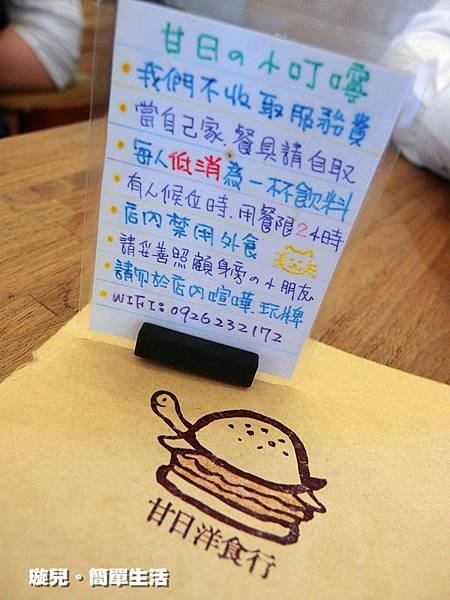 甘日の小叮嚀
我們不收取服務費
當自己家.餐具請自取
每人低消為一杯飲料
有人候位時.用餐限2小時
店內禁用外食
請妥善照顧身旁の小朋友
請勿於店內喧嘩.玩牌
WIFI:0926232172
甘日洋食行
璇兒。簡單生活